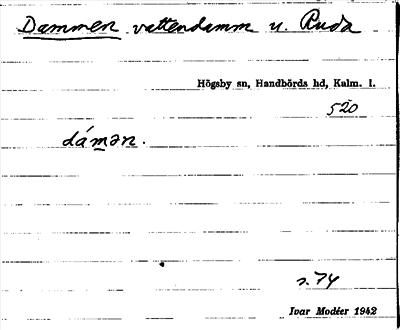 Dammen vattendamm u. Ruda
Högsby sn, Handbörds hd, Kalm. l.
520
dámən.
s. 74
Ivar Modéer 1942